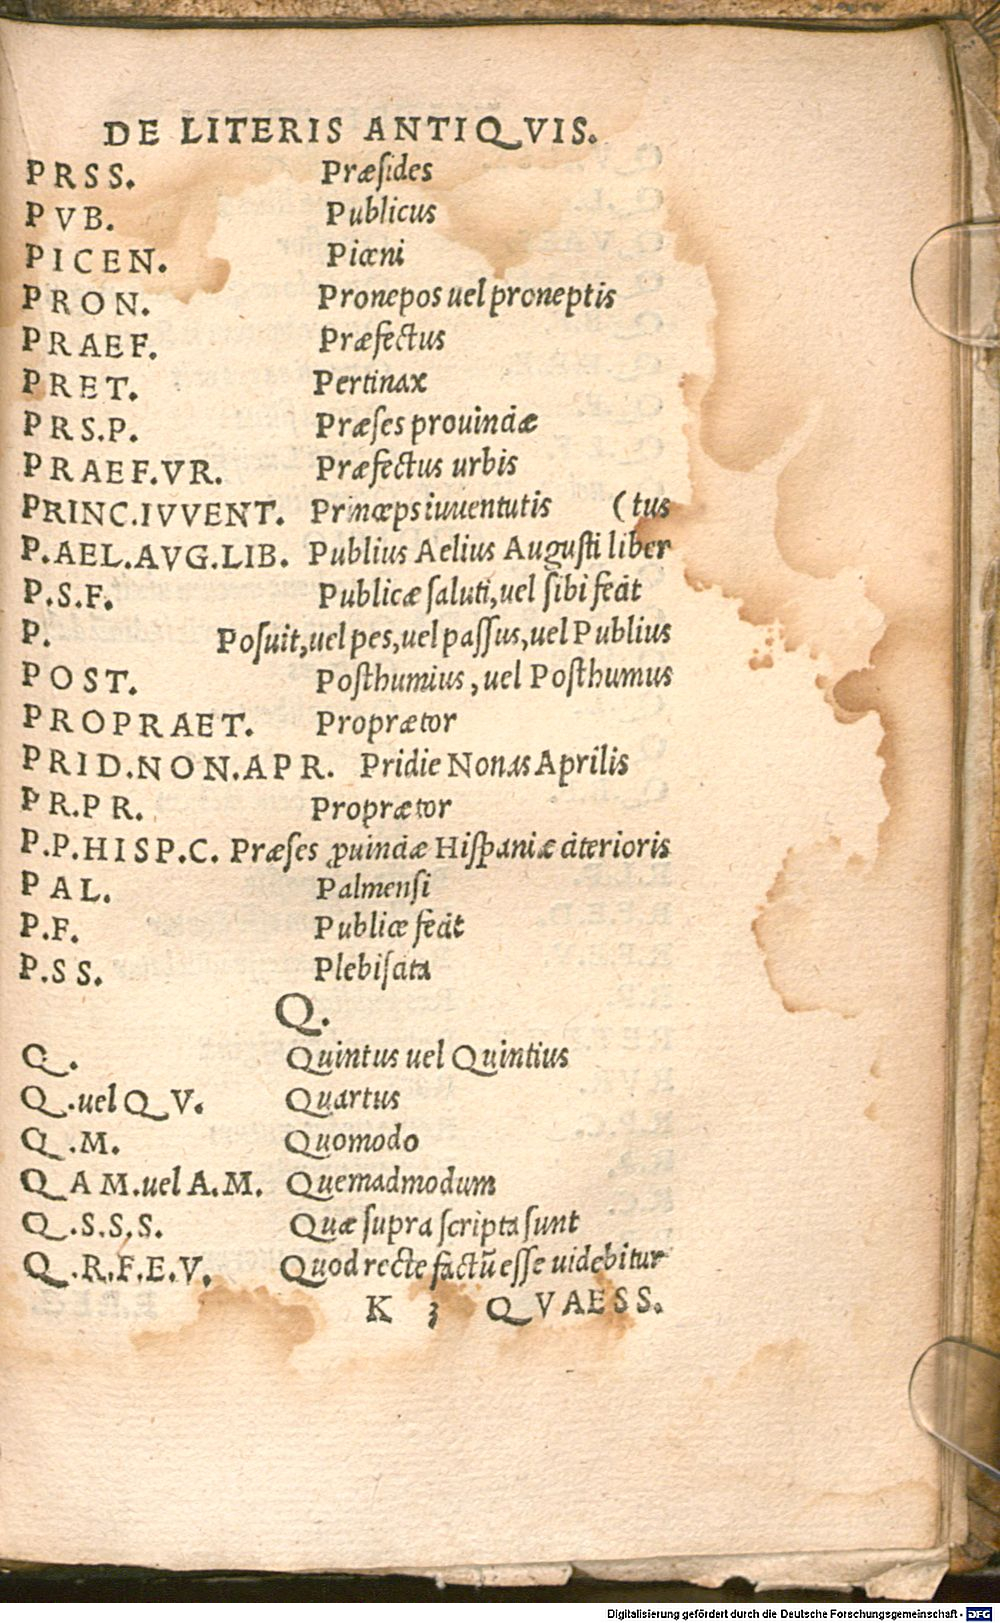 DE LITERIS ANTIQVIS.
PRSS. Præſides
PVB. Publicus
PICEN. Piceni
PRON. Pronepos uel proneptis
PRAEF. Præfectus
PRET. Pertinax
PRS.P. Præſes prouinciæ
PRAEF.VR. Præfectus urbis
PRINC.IVVENT. Princeps iuuentutis (tus
P.AEL.AVG.LIB. Publius Aelius Auguſti liber
P.S.F. Publicæ ſaluti, uel ſibi fecit
P. Poſuit, uel pes, uel paſſus, uel Publius
POST. Poſthumius, uel Poſthumus
PROPRAET. Proprætor
PRID.NON.APR. Pridie Nonas Aprilis
PR.PR. Proprætor
P.P.HISP.C. Præſes ꝓuinciæ Hiſpaniæ citerioris
PAL. Palmenſi
P.F. Publice fecit
P.SS. Plebiſcita
Q.
Q. Quintus uel Quintius
Q.uel QV. Quartus
Q.M. Quomodo
QAM.uel A.M. Quemadmodum
Q.S.S.S. Quæ ſupra ſcripta ſunt
Q.R.F.E.V. Quod recte factū eſſe uidebitur
K 3 QVAESS.
Digitalisierung gefördert durch die Deutsche Forschungsgemeinschaft - DFG